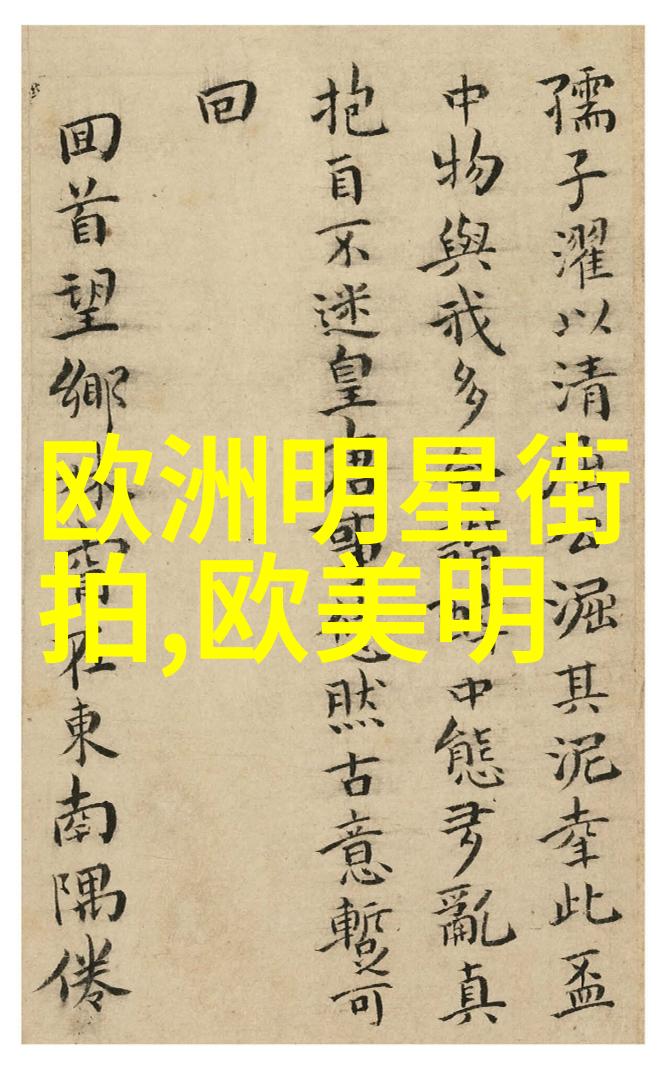 孺子濯以清淈其泥此盃
中物與我多中態亂真
抱不迷皇然古意暫可
回
回首望鄉在東南隅倦
欧洲明星街
拍,欧美明